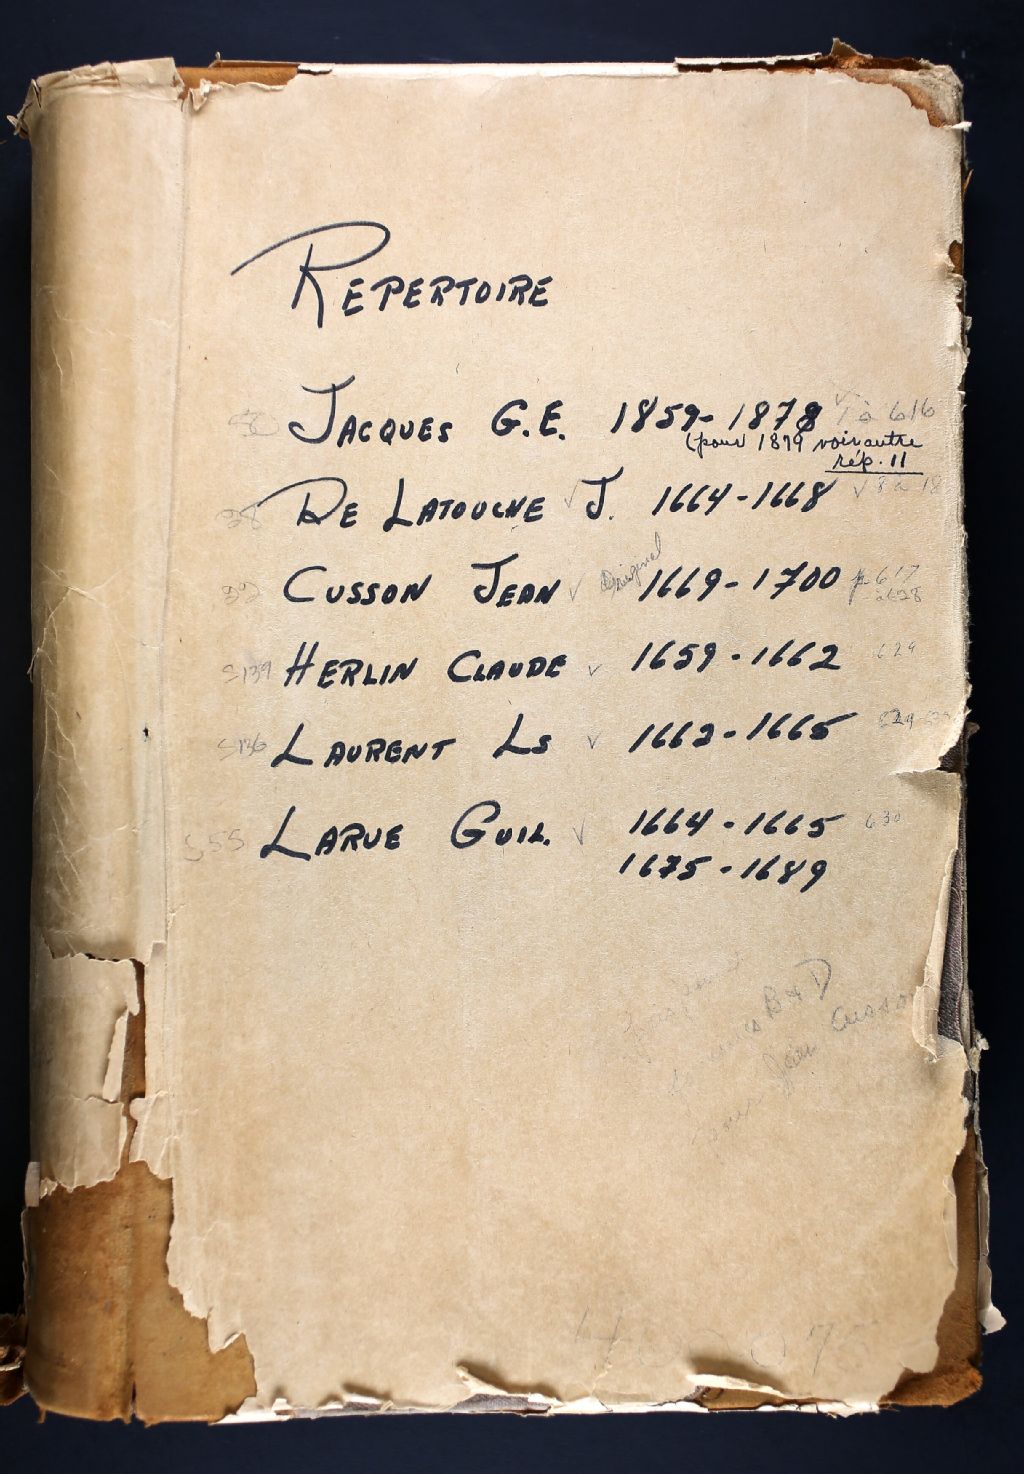 REPERTOIRE
JACQUES G.E. 1859-1878 1 à 616
(pour 1879 voir autre
rép. 11
38 DE LATOUCHE J. 1664-1668 8 à 18
CUSSON JEAN Original 1669-1700 p 617
à 628
S139 HERLIN CLAUDE 1659-1662 629
S136 LAURENT LS 1662-1665
S55 LARUE GUIL. 1664-1665 630
1675-1689
B & D
pour Jean Cusson